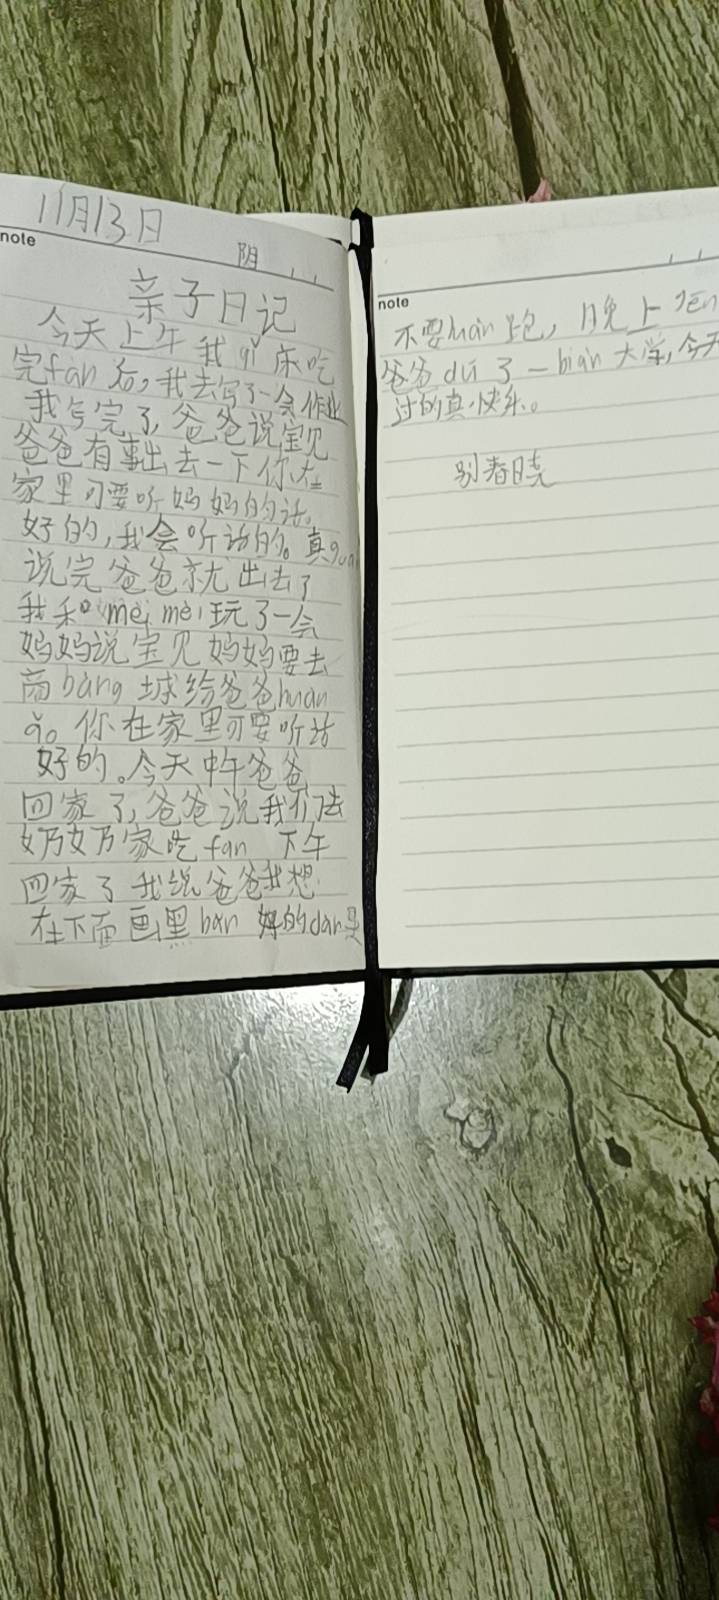 11月13日
note
阴
亲子日记
今天上午我qǐ床吃
完fàn后,我去写了一会作业
我写完了,爸爸说宝贝
爸爸有事出去一下你在
家里可要听妈妈的话。
好的,我会听话的。真guāi
说完爸爸就出去了
我和mèi mei玩了一会
妈妈说宝见妈妈要去
商bàng城给爸爸huan
你在家里可要听话
好的。今天中午爸爸
回家了,爸爸说我们去
奶奶家吃fan 下午
回家了我说爸爸我想
在下面画黑bǎn 好的dàn是
note
不要luàn跑,晚上gēn
爸爸dú了一biàn大学,今天
过的真快乐。
别春晓